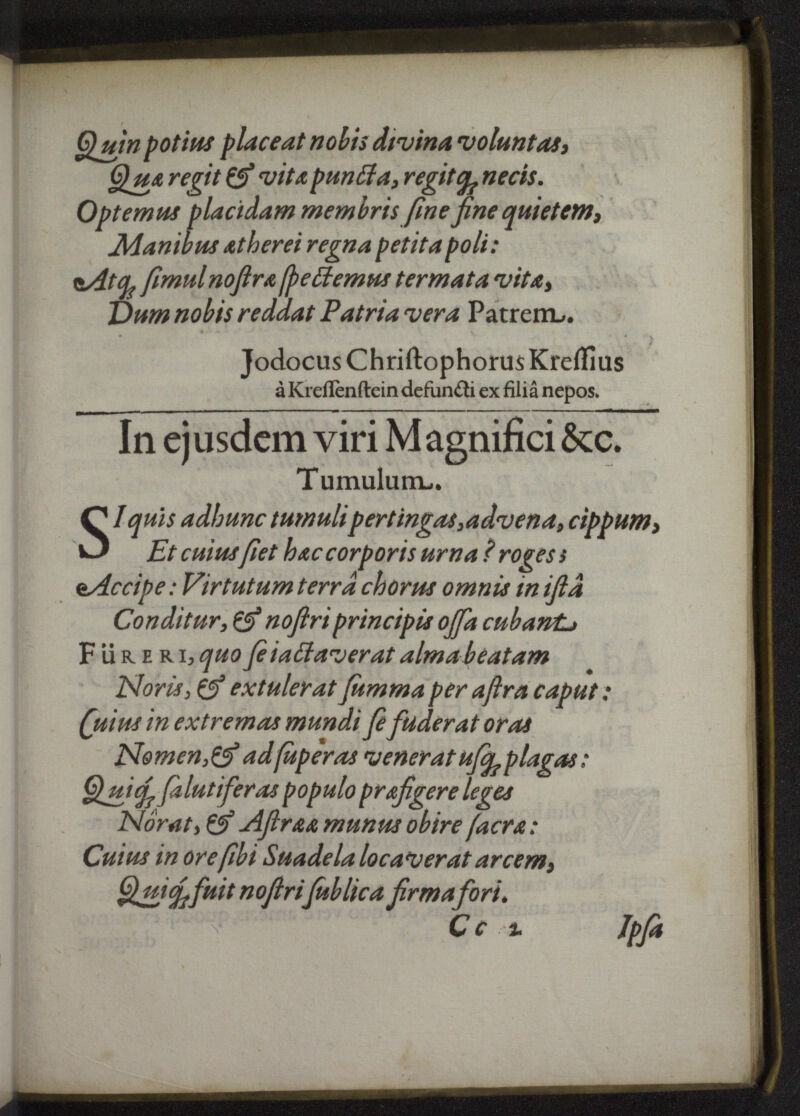 Quin potius placeat nobis divina voluntas,
Quæ regit & vitæ puncta, regitq́; necis.
Optemus placidam membris ſine fine quietem,
Manibus ætherei regna petita poli:
Atq́; ſimul noſtræ ſpectemus termata vitæ,
Dum nobis reddat Patria vera Patrem.
Jodocus Chriſtophorus Kreſſius
à Kreſſenſtein defuncti ex filiâ nepos.
In ejusdem viri Magnifici &c.
Tumulum.
SI quis ad hunc tumuli pertingas, advena, cippum,
Et cuius ſiet hæc corporis urna? roges;
Accipe: Virtutum terrâ chorus omnis in iſtâ
Conditur, & noſtri principis oſſa cubant
FüRERI, quo ſe iactaverat alma beatam
Noris, & extulerat ſumma per aſtra caput:
Cuius in extremas mundi ſe fuderat oras
Nomen, & ad ſuperas venerat uſq́; plagas:
Quiq́; ſalutiferas populo præfigere leges
Nôrat, & Aſtrææ munus obire ſacræ:
Cuius in ore ſibi Suadela locaverat arcem,
Quiq́; fuit noſtri ſublica firma fori.
Cc 2 Ipſa